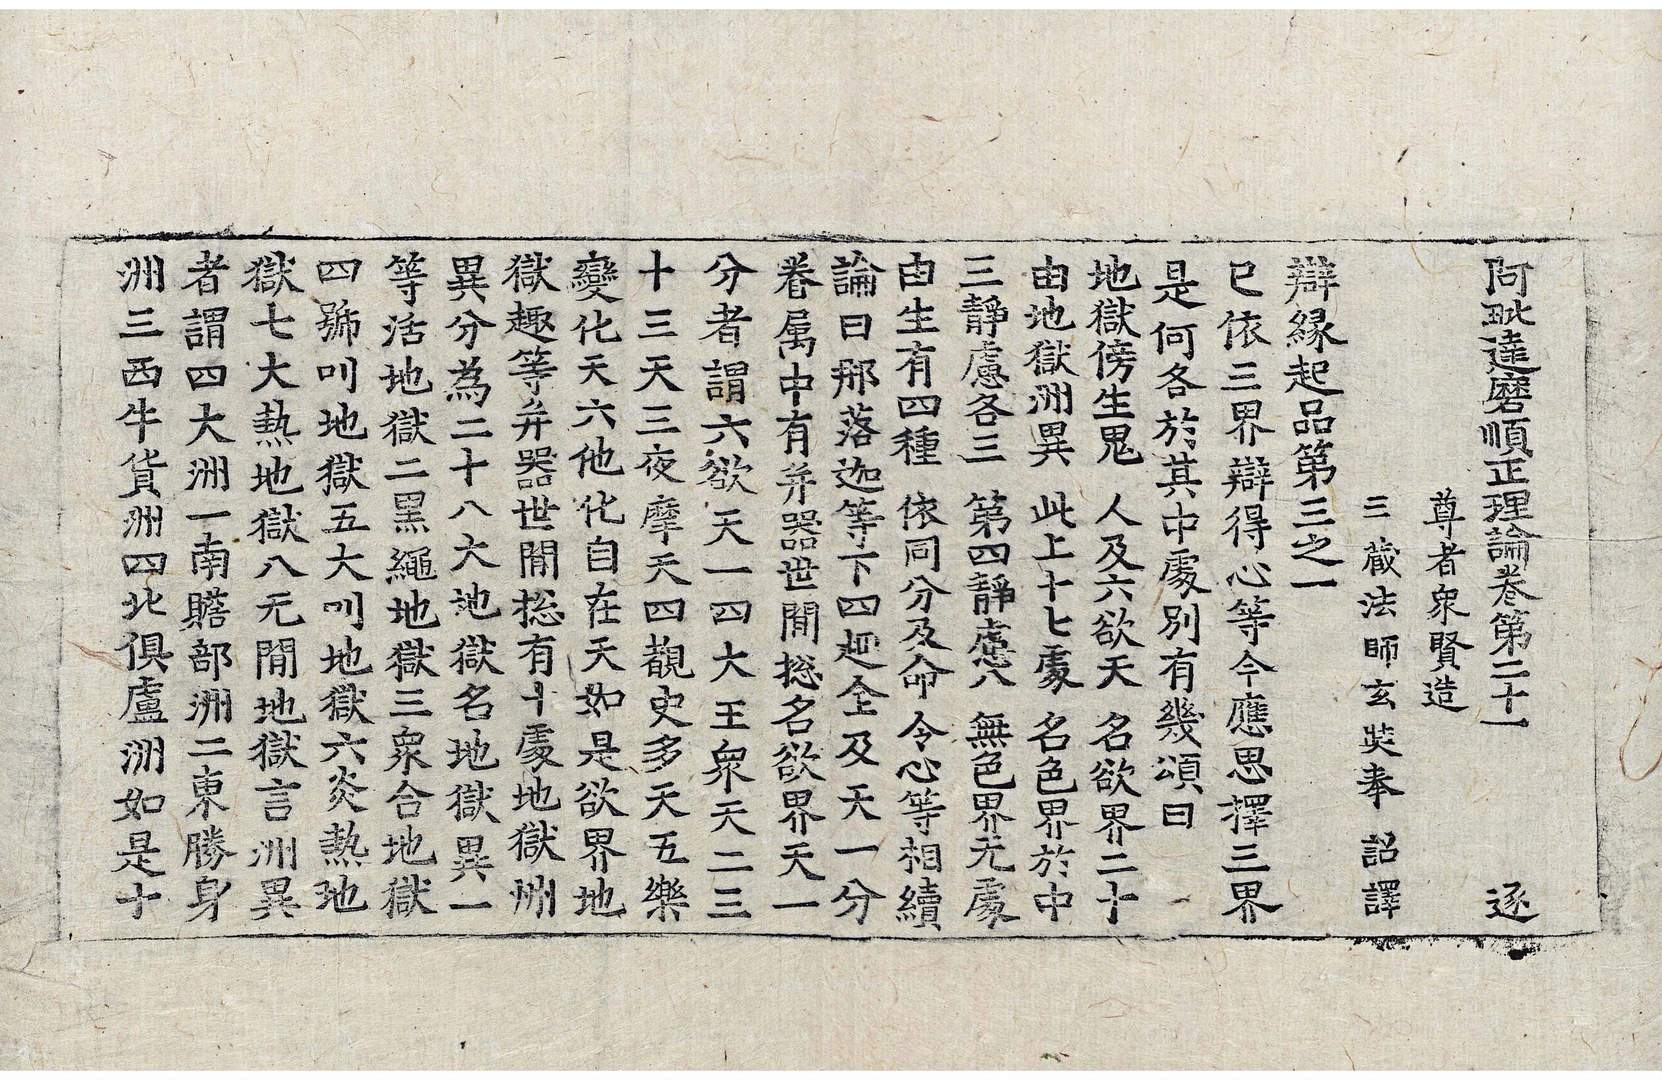 阿毗達磨順正理論卷第二十一 逐
尊者衆賢造
三藏法師玄奘奉 詔譯
辯緣起品第三之一
已依三界辯得心等今應思擇三界
是何各於其中處別有幾頌曰
地獄傍生鬼 人及六欲天 名欲界二十
由地獄洲異 此上十七處 名色界於中
三靜慮各三 第四靜慮八 無色界无處
由生有四種 依同分及命 令心等相續
論曰那落迦等下四趣全及天一分
眷属中有并器世間揔名欲界天一
分者謂六欲天一四大王衆天二三
十三天三夜摩天四覩史多天五樂
變化天六他化自在天如是欲界地
獄趣等并器世間揔有十處地獄洲
異分為二十八大地獄名地獄異一
等活地獄二黑繩地獄三衆合地獄
四號叫地獄五大叫地獄六炎熱地
獄七大熱地獄八无間地獄言洲異
者謂四大洲一南贍部洲二東勝身
洲三西牛貨洲四北俱盧洲如是十